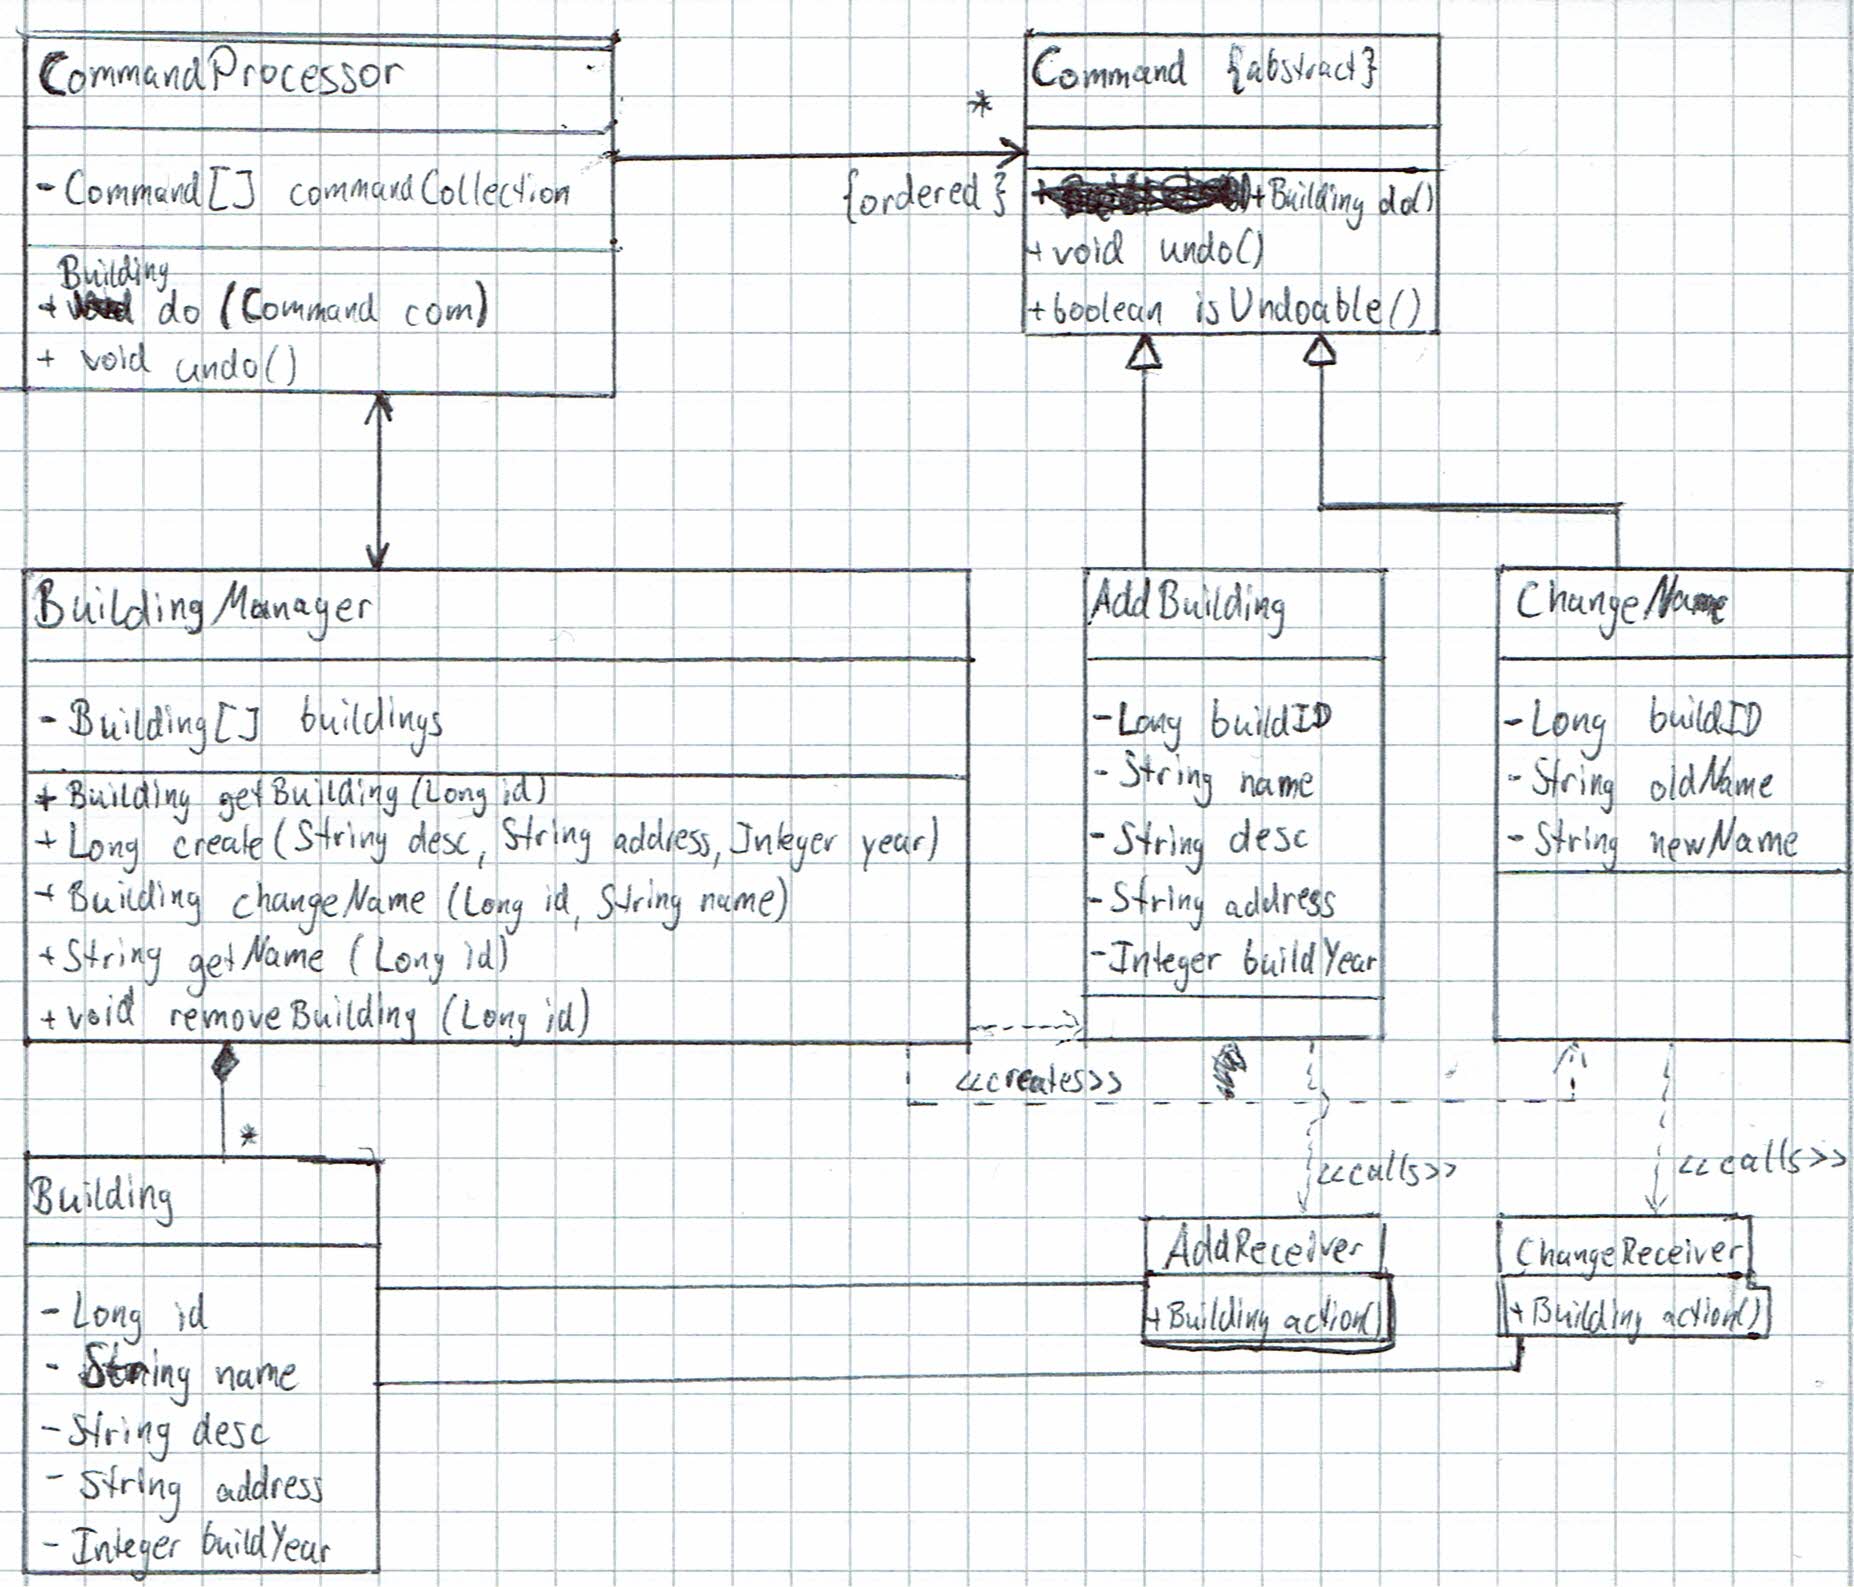 CommandProcessor
- Command[] commandCollection
Building
+ do (Command com)
+ void undo()
*
{ordered}
Command {abstract}
+Building do()
+ void undo()
+ boolean isUndoable()
BuildingManager
- Building[] buildings
+ Building getBuilding (Long id)
+ Long create (String desc, String address, Integer year)
+ Building changeName (Long id, String name)
+ String getName (Long id)
+ void removeBuilding (Long id)
AddBuilding
- Long buildID
- String name
- String desc
- String address
- Integer buildYear
ChangeName
- Long buildID
- String oldName
- String newName
<<creates>>
<<calls>>
<<calls>>
*
Building
- Long id
- String name
- String desc
- String address
- Integer buildYear
AddReceiver
+ Building action()
ChangeReceiver
+ Building action()